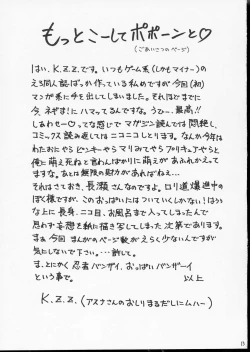 もっとこーしてポポーンと♡
(ごあいさつのページ)
はい、K.Z.Z.です。いつもゲーム系(しかもマイナー)の
えろ同人誌ばっか作っている私めですが今回(初)
マンガ系に手を出してしまいました。それほどまでに
今、ネギま!に ハマってるんですな。うむ…最高!!
しあわせーロってな感じで マガジン読んでは悶絶し、
コミックス読み返しては ニコニコしとります。なんか今年は
わたおにやら ピンキーやら マリみてやら プリキュアやらと
俺に萌え死ねと言わんばかりに萌えが あふれかえってますな。
あとは無限の財力があればねぇ…。
さて、おきましては、長瀬さんなのですよ。ロリ道爆進中の
ぼく様ですが、このおっぱいには ついていくしかない!はう
なうえに長身、ニコ目、お風呂まで入ってしまったんで
思わず妄想を紙に描き写してしまった 次第であります。
まぁ 今回 まんがのページ数がえらく少ないんですが
気にしないで下さい。…許して。
ま、とにかく 忍者 バンザイ、おっぱい バンザーイ
という事で。 以上
K.Z.Z.(アスナさんのおしりまるだしにムハー)
13